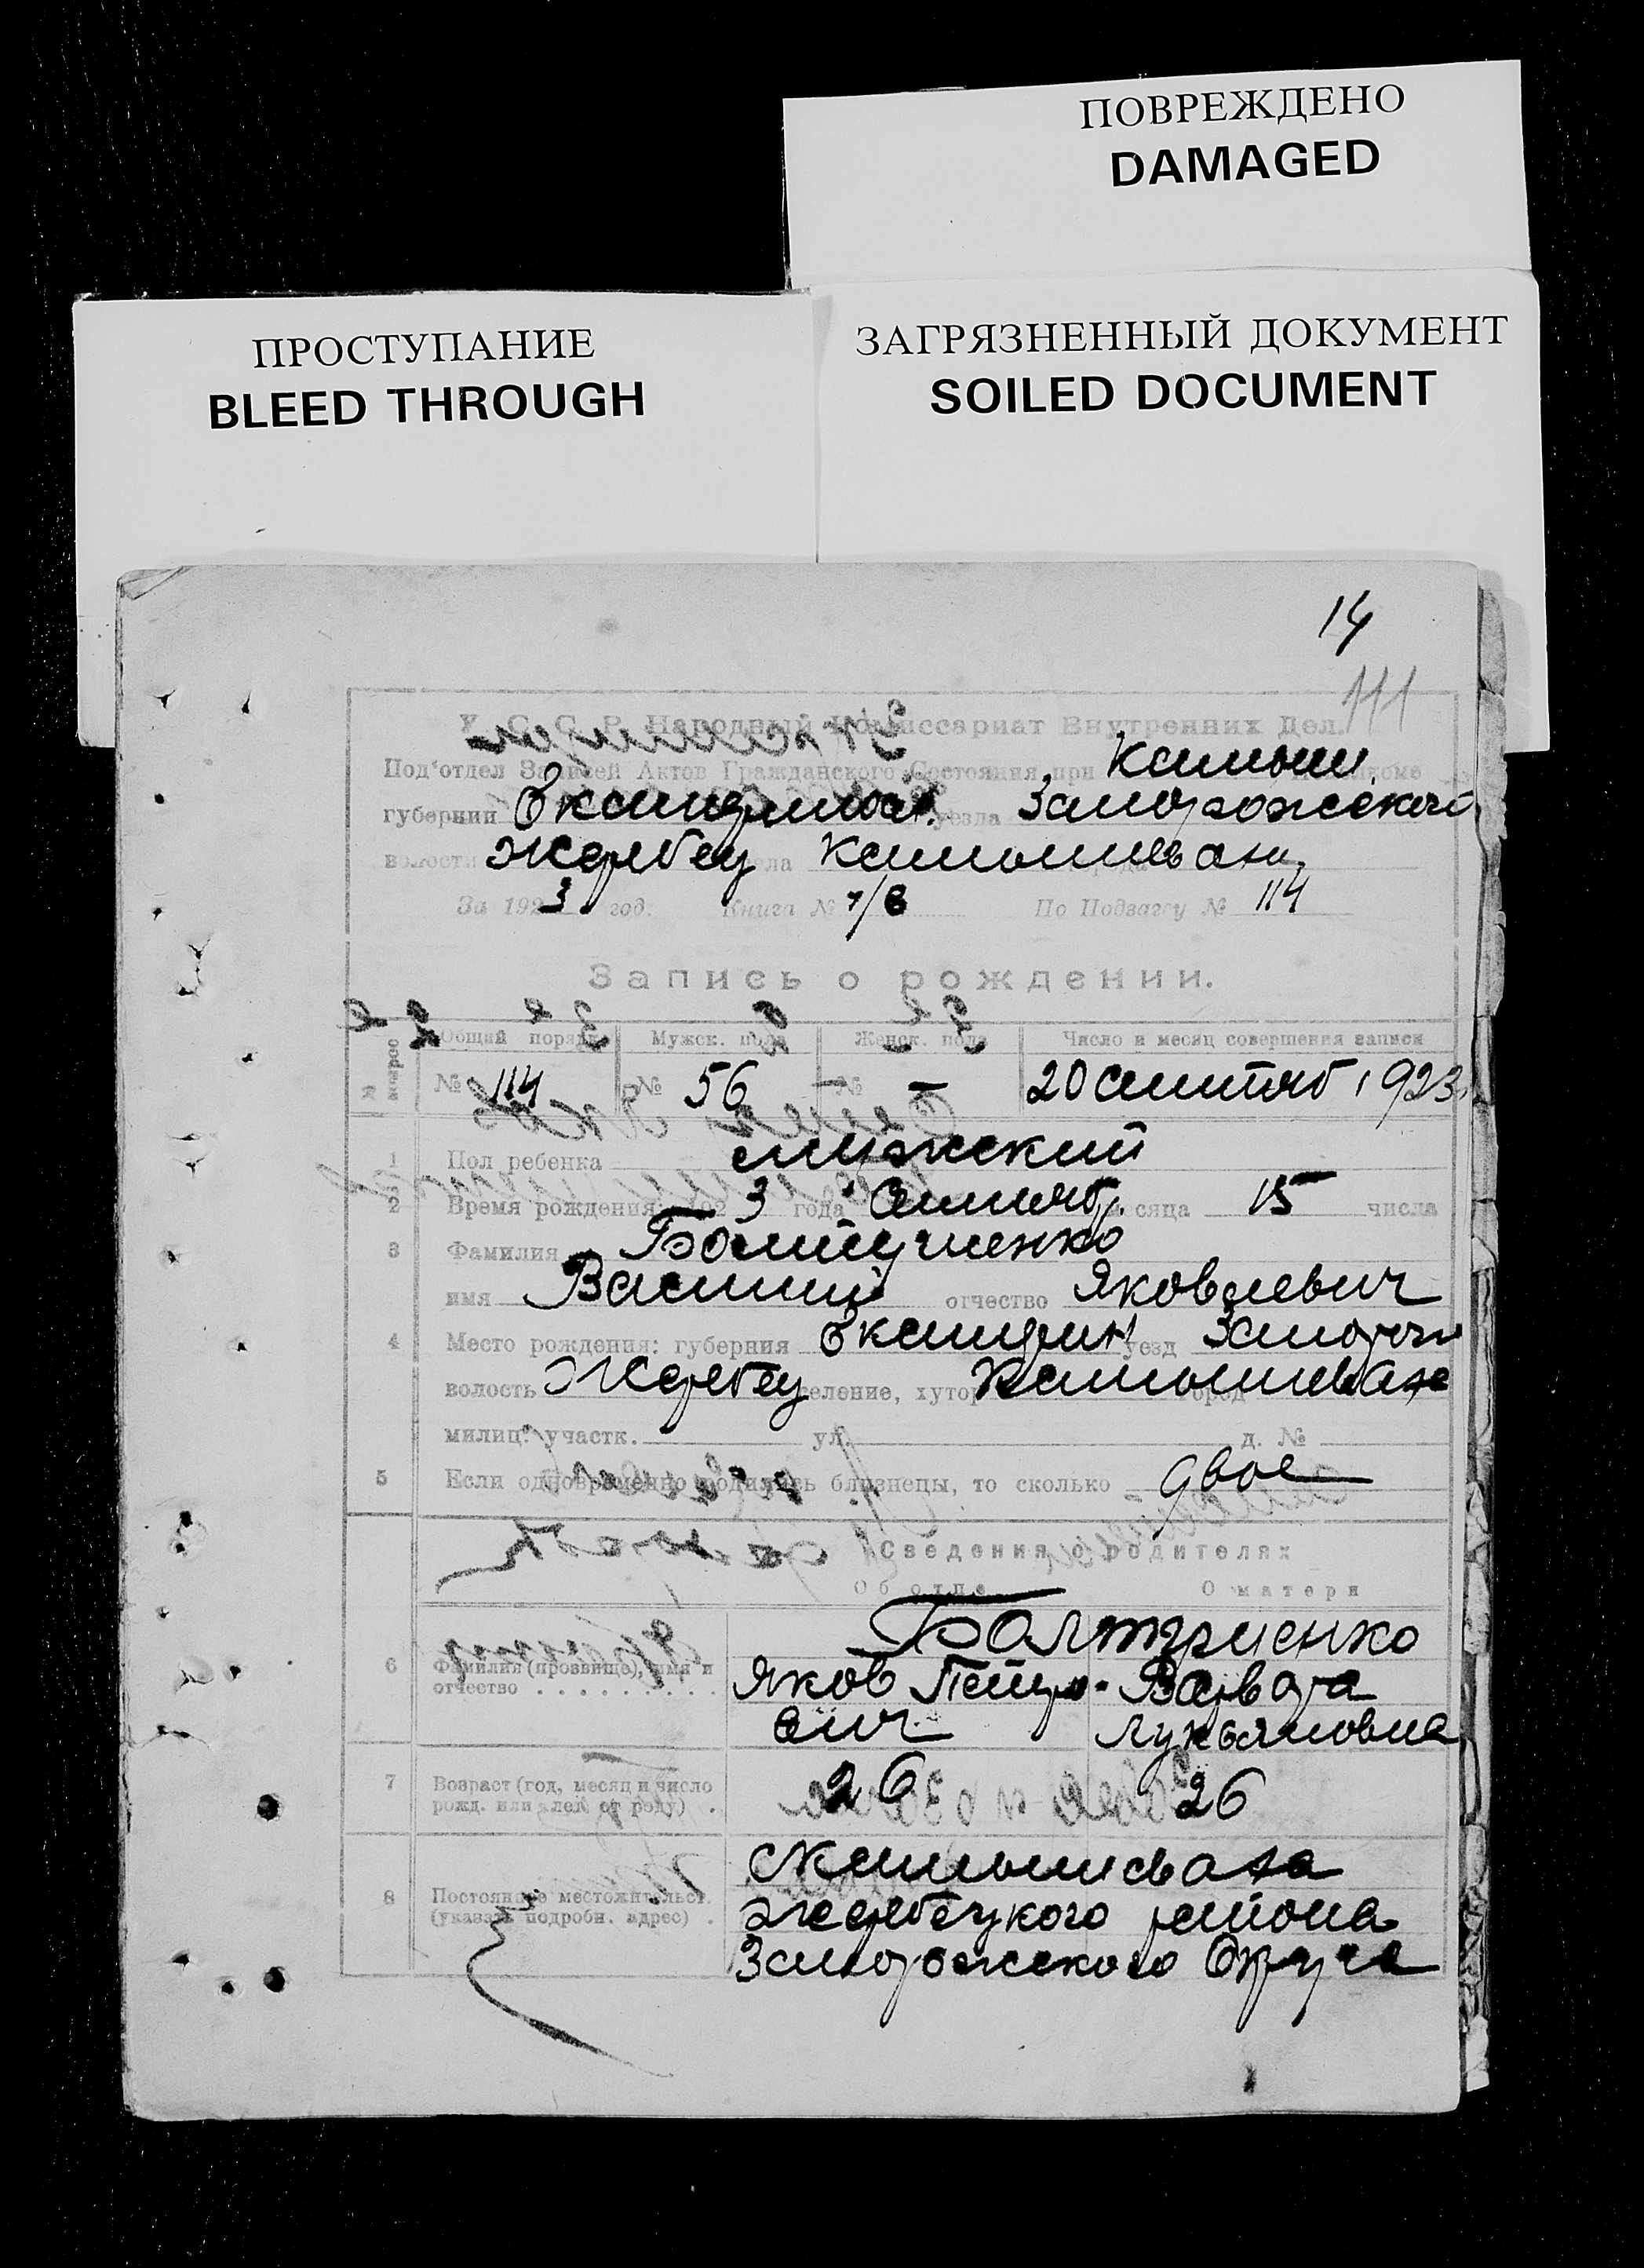 ПОВРЕЖДЕНО
DAMAGED
ПРОСТУПАНИЕ
BLEED THROUGH
ЗАГРЯЗНЕННЫЙ ДОКУМЕНТ
SOILED DOCUMENT
14
111
У. С. С. Р. Народный Комиссариат Внутренних Дел.
Под'отдел Записей Актов Гражданского Состояния при Камыш.
губернии уезда Запорожского
волости Жеребец села Камышеваха
За 1923 год. Книга № По Подвагсу № 114
Запись о рождении.
Общий поряд. Мужск. пола Женск. пола Число и месяц совершения записи
№ 114 № 56 № — 20 Сентяб 1923
1 Пол ребенка мужский
2 Время рождения: 1923 года Сентяб. месяца 15 числа
3 Фамилия
имя Василий отчество Яковлевич
4 Место рождения: губерния уезд
волость Жеребец селение, хутор Камышеваха город
милиц. участк. ул. д. №
5 Если одновременно родились близнецы, то сколько двое
Сведения о родителях
Об отце О матери
Болтриенко
6 Фамилия (прозвище), имя и отчество Яков Петро- Варвара
вич Лукьяновна
7 Возраст (год, месяц и число рожд. или лет от роду) 26 26
8 Постоянное местожительст. (указать подробн. адрес) с Камышеваха
Жеребецкого района
Запорожского Округа